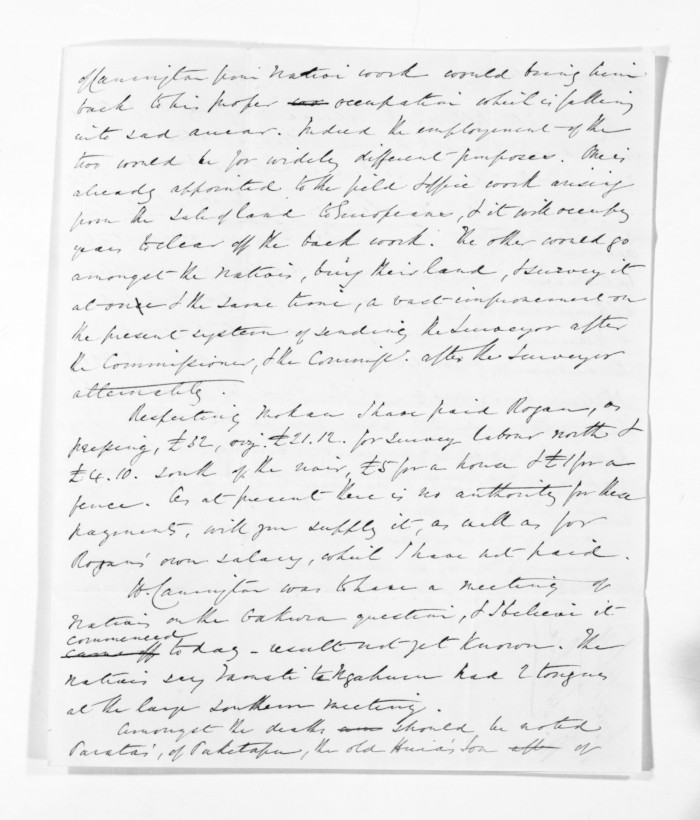 of Carrington from Native work would bring him
back to his proper occupation which is falling
into sad arrear. Indeed the employment of the
two would be for widely different purposes. One is
already appointed to the field & office work arising
from the sale of land to Europeans, & it will occupy
years to clear off the back work. The other would go
amongst the Natives, buy their land, & survey it
at once & the same time, a vast improvement on
the present system of sending the Surveyor after
the Commissioner, & the Commissr. after the Surveyor
alternately.
Respecting Mokau I have paid Rogan, as
£32, £21.12. for survey labour north &
£4.10. south of the river, £5 for a house & £1 for a
fence. As at present there is no authority for these
payments, will you supply it, as well as for
Rogan's own salary, which I have not paid.
W. Carrington was to have a meeting of
Natives on the question, & I believe it
commenced
came off today - result not yet known. The
natives say Tamati te Ngahuru had 2 tongues
at the large southern meeting.
Amongst the deaths should be noted
Paratai, of Puketapu, the old Huria's son of